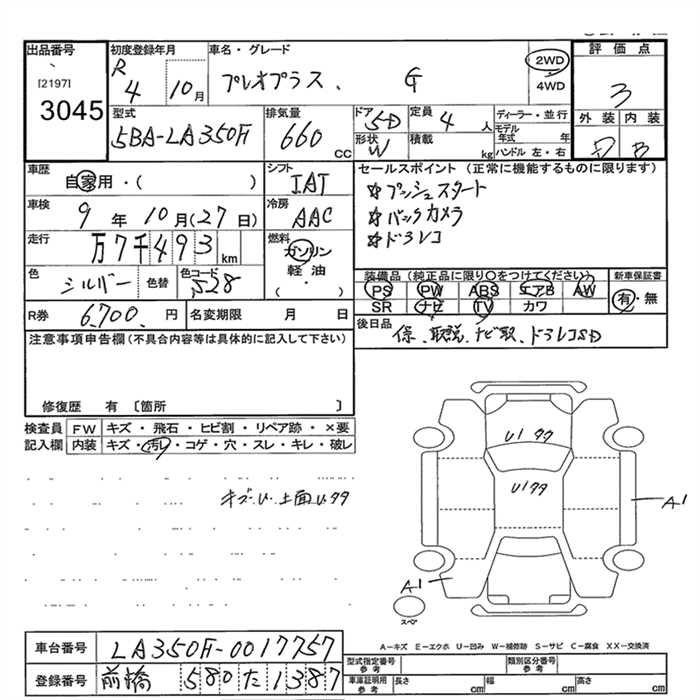 出品番号 初度登録年月 車名・グレード 評価点
[2197] R 4 10月 プレオプラス. G 2WD 4WD 3
3045
型式 排気量 ドア 定員 ディーラー・並行 外装 内装
5BA-LA350F 660 CC 5D 4人 モデル年式 年
形状 W 積載 kg ハンドル 左・右 B
車歴 自家用・( ) シフト IAT セールスポイント (正常に機能するものに限ります)
車検 9年10月(27日) 冷房 AAC ☆プッシュスタート
☆バックカメラ
走行 万7千493km 燃料 ガソリン 軽油 ( ・ ) ☆ドラレコ
色 シルバー 色替 色コード S28 装備品 (純正品に限り〇をつけてください) 新車保証書
PS PW ABS エアB AW 有・無
SR ナビ TV カワ
R券 6,700.円 名変期限 月 日 後日品 保、取説、ナビ取、ドラレコSD
注意事項申告欄 (不具合内容等は具体的に記入して下さい)
修復歴 有 〔箇所 〕
検査員 FW キズ・飛石・ヒビ割・リペア跡・×要
記入欄 内装 キズ・汚レ・コゲ・穴・スレ・キレ・破レ
キズ.U.上面Uタタ
U1タタ
U1タタ
A1
A1
スペア
A-キズ E-エクボ U-凹み W-補修跡 S-サビ C-腐食 XX-交換済
車台番号 LA350F-0017757 型式指定番号 参考 類別区分番号 参考
登録番号 前橋 580 た 1387 車庫証明用 参考 長さ cm 幅 cm 高さ cm